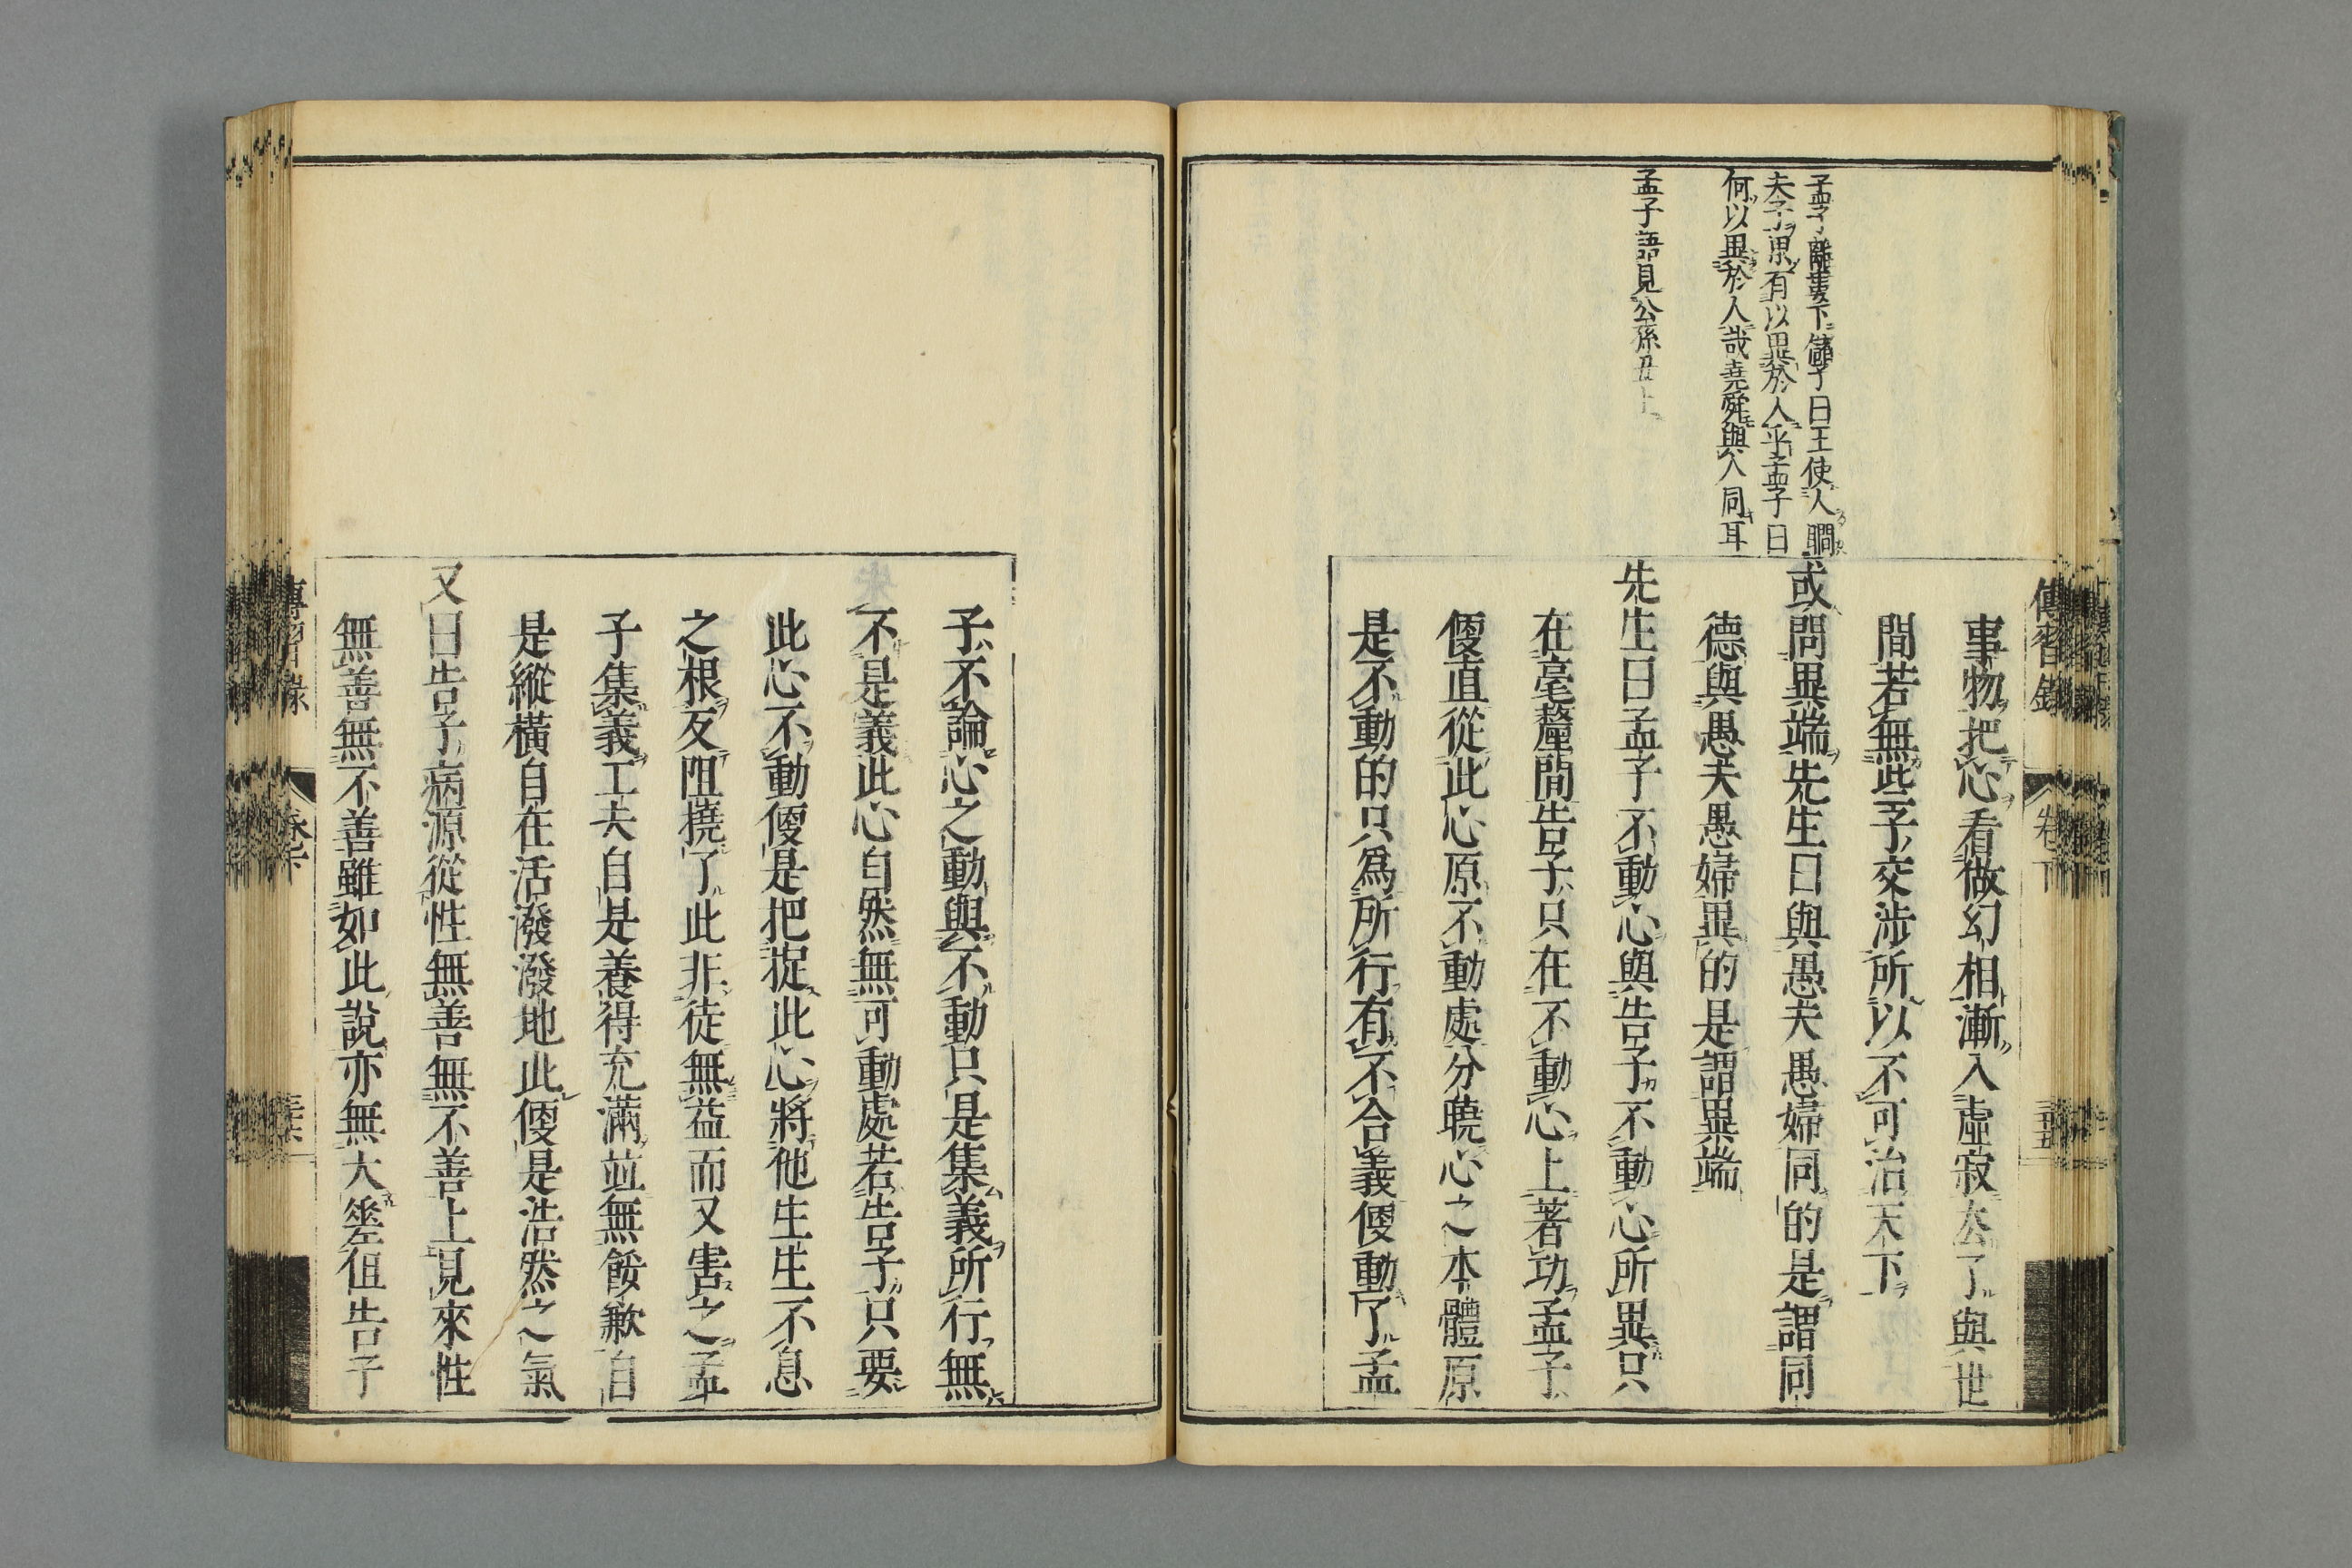 孟子離婁下儲子曰王使人瞷
夫子果有以異於人乎孟子曰
何以異於人哉堯舜與人同耳
孟子語見公孫丑上
傳習錄
卷下
三十五
事物把心看做幻相漸入虛寂去了與世
間若無些子交涉所以不可治天下
或問異端先生曰與愚夫愚婦同的是謂同
德與愚夫愚婦異的是謂異端
先生曰孟子不動心與告子不動心所異只
在毫釐間告子只在不動心上著功孟子
便直從此心原不動處分曉心之本體原
是不動的只爲所行有不合義便動了孟
子不論心之動與不動只是集義所行無
不是義此心自然無可動處若告子只要
此心不動便是把捉此心將他生生不息
之根反阻撓了此非徒無益而又害之孟
子集義工夫自是養得充滿並無餒歉自
是縱橫自在活潑潑地此便是浩然之氣
又曰告子病源從性無善無不善上見來性
無善無不善雖如此說亦無大差但告子
傳習錄
卷下